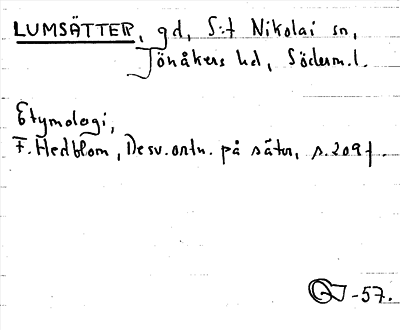 LUMSÄTTER, gd, S:t Nikolai sn,
Jönåkers hd, Söderm.l.
Etymologi,
F. Hedblom, De sv. ortn. på säter, s. 209 f.
-57.